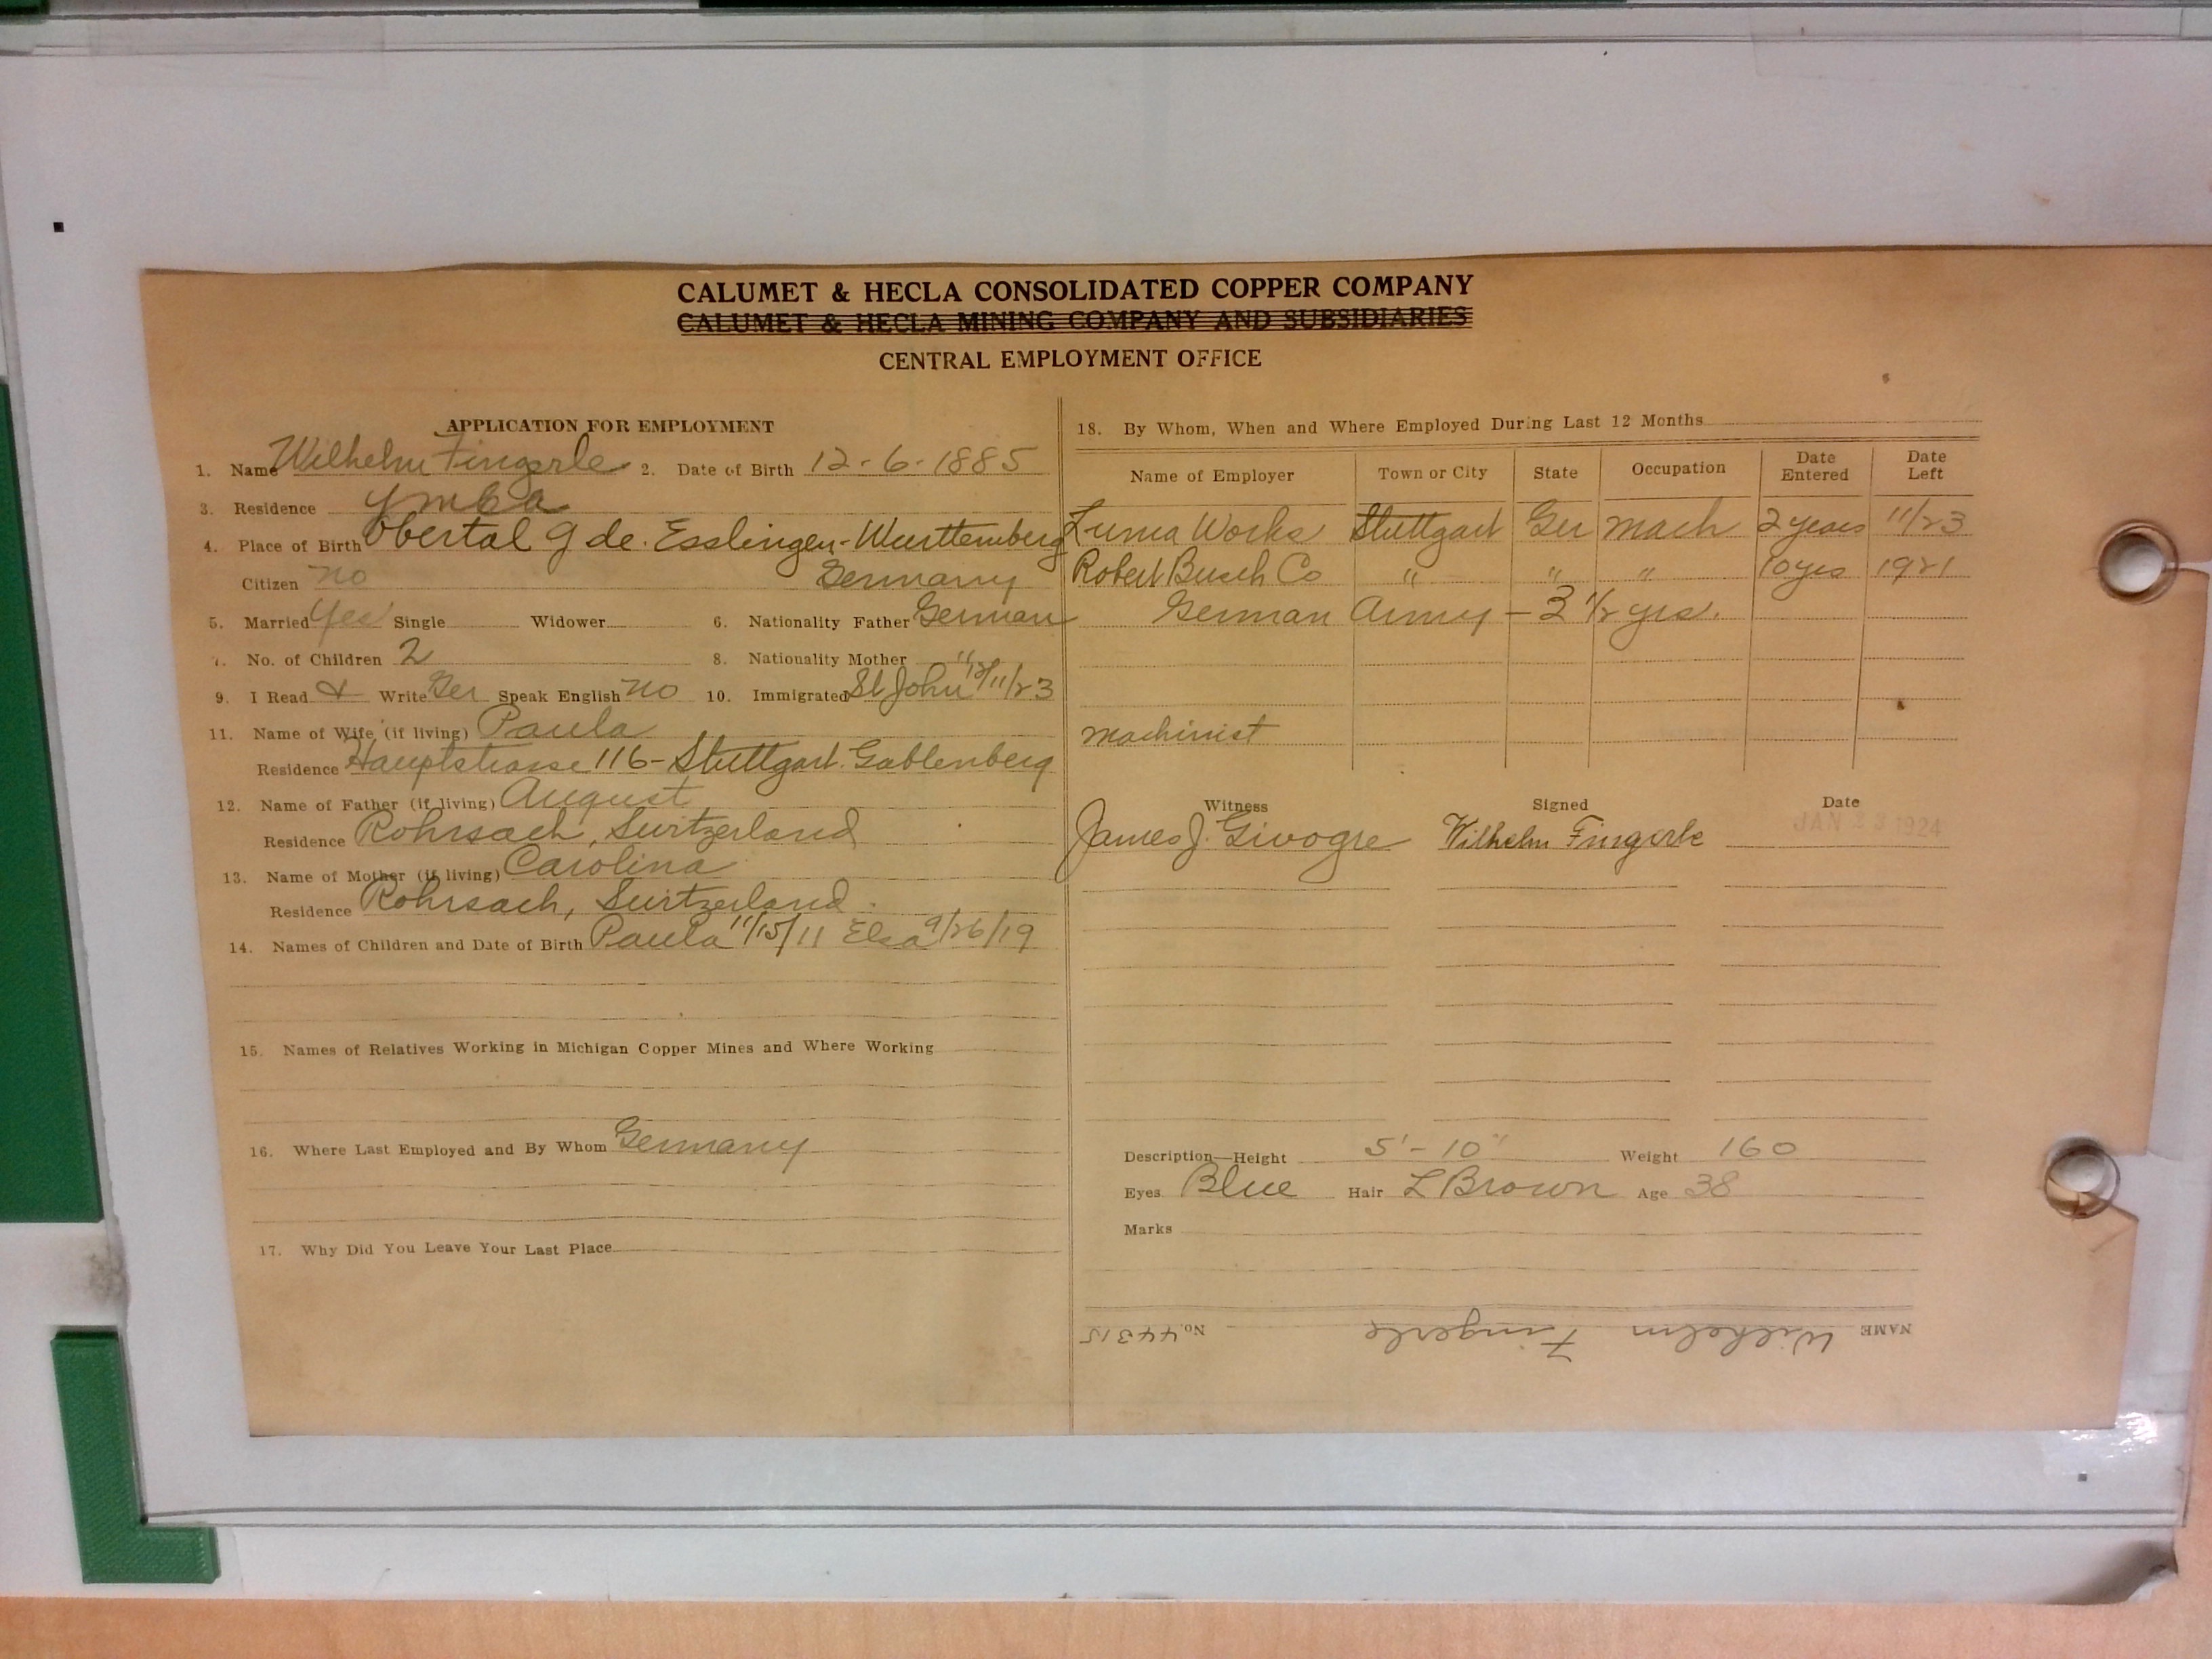 CALUMET & HECLA CONSOLIDATED COPPER COMPANY
CALUMET & HECLA MINING COMPANY AND SUBSIDIARIES
CENTRAL EMPLOYMENT OFFICE
APPLICATION FOR EMPLOYMENT
1. Name Wilhelm Fingerle 2. Date of Birth 12-6-1885
3. Residence YMCA
4. Place of Birth Obertal Gde. Esslingen-Wurttemberg
Citizen no Germany
5. Married Yes Single Widower 6. Nationality Father German
7. No. of Children 2 8. Nationality Mother "
9. I Read & Write Ger Speak English no 10. Immigrated St John 12/11/23
11. Name of Wife (if living) Paula
Residence Hauptstrasse 116-Stuttgart. Gablenberg
12. Name of Father (if living) August
Residence Rohrsach, Switzerland
13. Name of Mother (if living) Carolina
Residence Rohrsach, Switzerland.
14. Names of Children and Date of Birth Paula 11/15/11 Elsa 9/26/19
15. Names of Relatives Working in Michigan Copper Mines and Where Working
16. Where Last Employed and By Whom Germany
17. Why Did You Leave Your Last Place
18. By Whom, When and Where Employed During Last 12 Months
Name of Employer Town or City State Occupation Date Entered Date Left
Luma Works Stuttgart Ger Mach 2 years 11/23
Robert Busch Co " " " 10 yrs 1921
German Army - 3 1/2 yrs.
Machinist
Witness Signed Date
James J. Givogre Wilhelm Fingerle JAN 23 1924
Description—Height 5'-10" Weight 160
Eyes Blue Hair L Brown Age 38
Marks
NAME Wilhelm Fingerle No. 44315